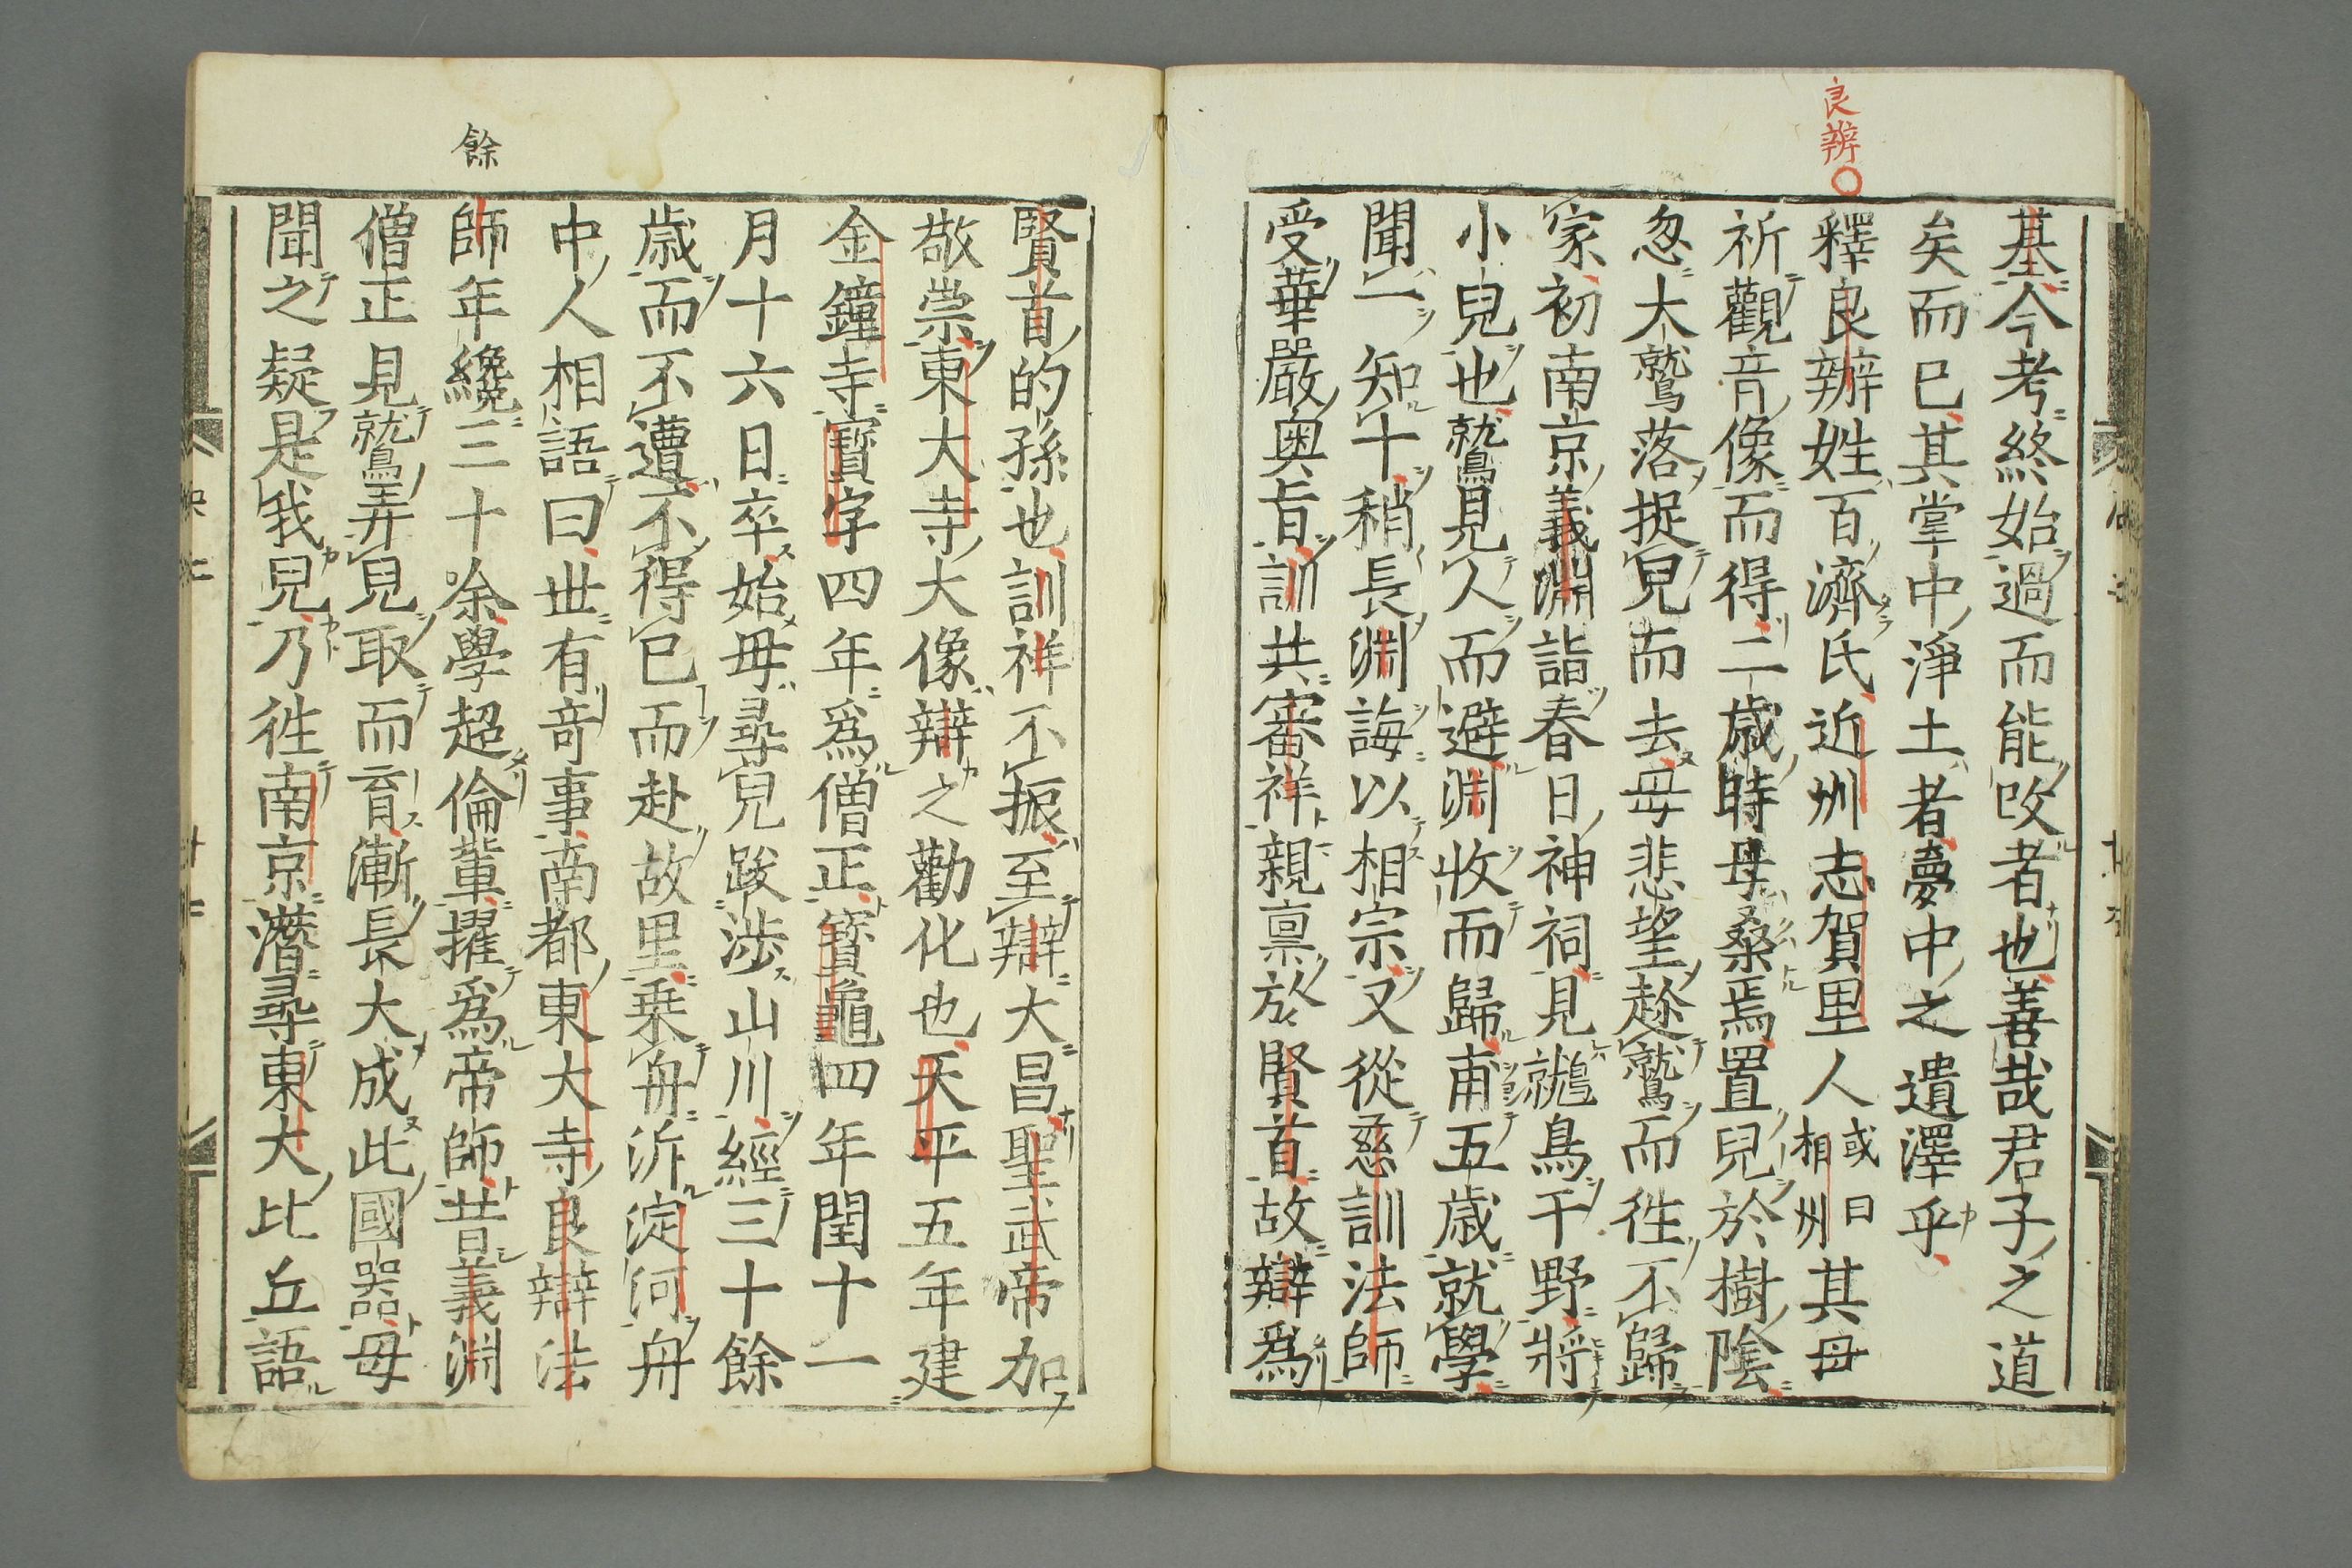 良辨〇
基今考終始過而能改者也善哉君子之道
矣而已其掌中淨土者夢中之遺澤乎
釋良辨姓百濟氏近州志賀里人或曰相州其母
祈觀音像而得二歲時母桑焉置兒於樹陰
忽大鷲落捉兒而去母悲望趁鷲而徃不歸
家初南京義淵詣春日神祠見鷲鳥干野將
小兒也鷲見人而避淵收而歸甫五歲就學
聞一知十稍長淵誨以相宗又從慈訓法師
受華嚴奧旨訓共審祥親禀於賢首故辯爲
賢首的孫也訓祥不振至辯大昌聖武帝加
敬崇東大寺大像辯之勸化也天平五年建
金鐘寺寳字四年爲僧正寳龜四年閏十一
月十六日卒始母尋兒跋涉山川經三十餘
歲而不遭不得已而赴故里乗舟泝淀河舟
中人相語曰世有竒事南都東大寺良辯法
餘
師年纔三十余學超倫輩擢爲帝師昔義淵
僧正見鷲弄兒取而育漸長大成此國器母
聞之疑是我兒乃徃南京潛尋東大比丘語